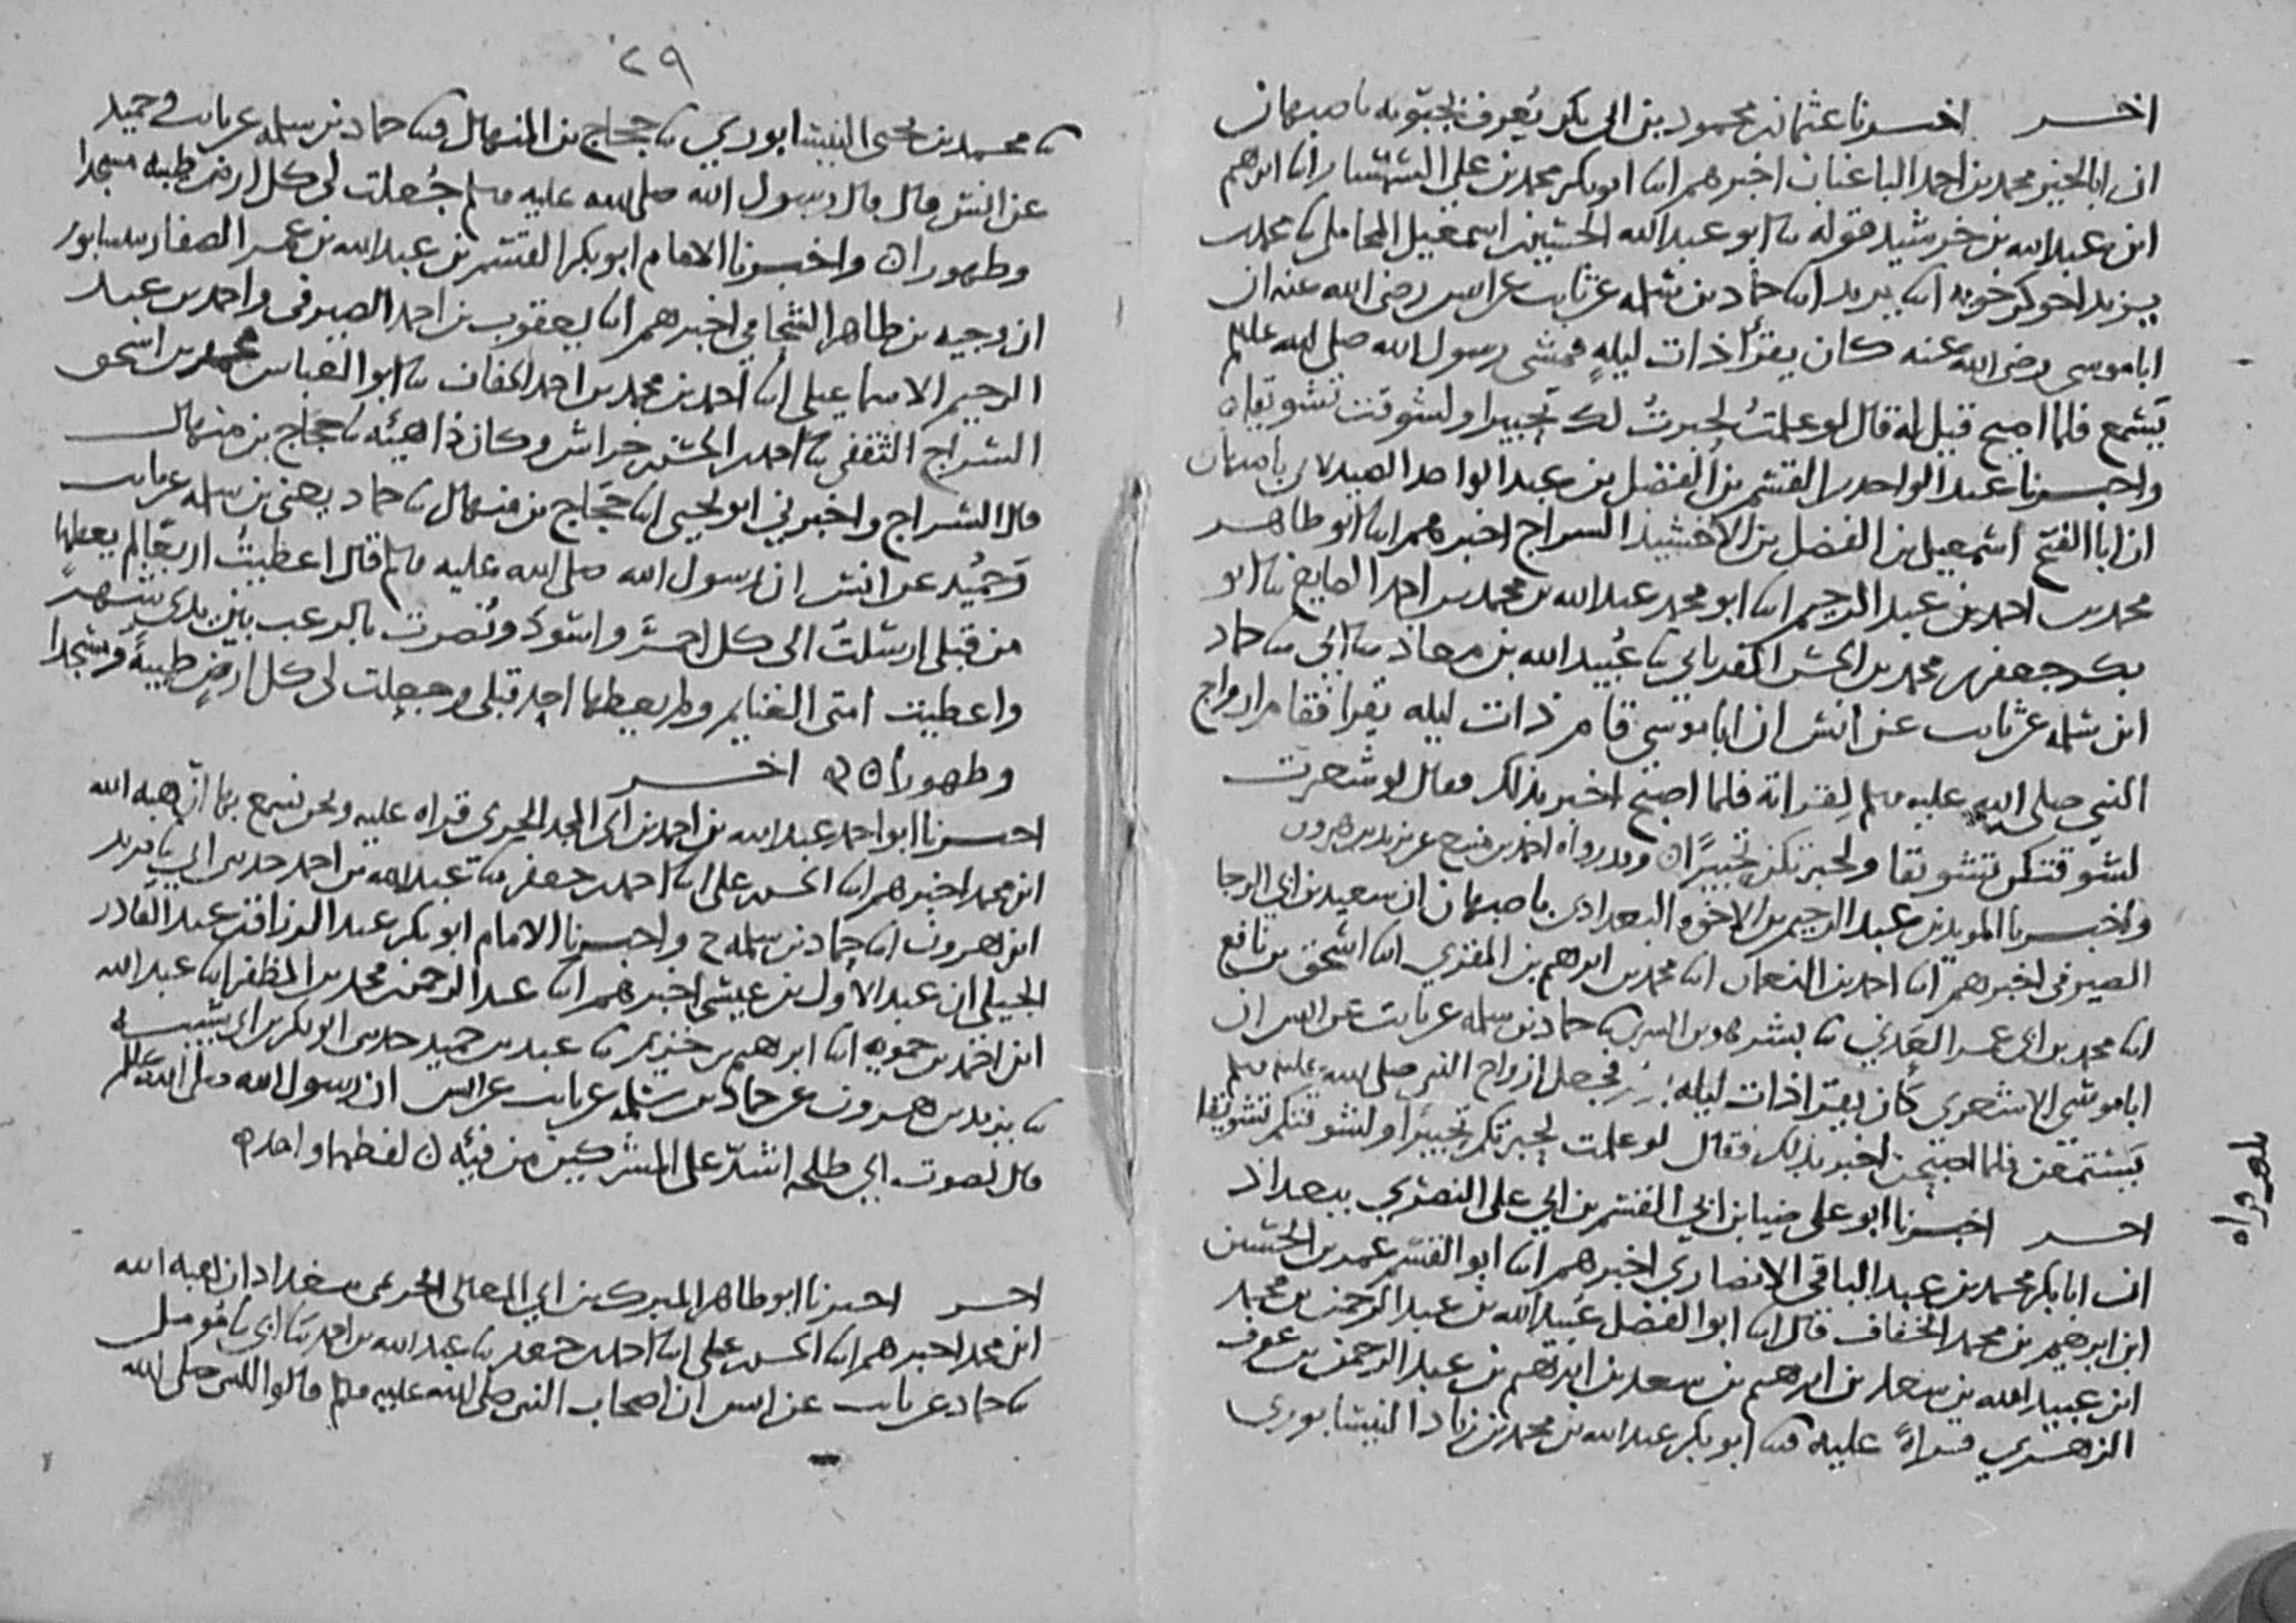 اخر اخبرنا عثمان بن محمود بن ابى بكر يُعرف بحبّويه باصبهان
ان ابا الخير محمد بن احمد الباغبان اخبرهم انا ابو بكر محمد بن على السمسار انا ابرهيم
ابن عبد الله بن خرشيد قوله نا ابو عبد الله الحسين بن اسمعيل المحاملى نا محمد بن
يزيد اخو كرخويه انا يزيد انا حماد بن سلمه عن ثابت عن انس رضى الله عنه ان
ابا موسى رضى الله عنه كان يقرأ ذات ليلةٍ فمشى رسول الله صلى الله عليه
يَسْمع فلما اصبح قيل له قال لو علمتُ لحبرتُ لك تحبيرا ولشوقت تشويقا
واخبرنا عبد الواحد بن القسم بن الفضل بن عبد الواحد الصيدلانى باصبهان
ان ابا الفتح اسمعيل بن الفضل بن الاخشيذ السراج اخبرهم انا ابو طاهر
محمد بن احمد بن عبد الرحيم انا ابو محمد عبد الله بن محمد بن احمد الصايغ نا ابو
بكر جعفر بن محمد بن الحسن الفريابي نا عُبيد الله بن معاذ نا ابى نا حماد
ابن سلمه عن ثابت عن انس ان ابا موسى قام ذات ليله يقرا فقام ازواج
النبي صلى الله عليه وسلم لقراته فلما اصبح اخبر بذلك فقال لو شعرت
لشوّقتكن تشويقا ولحبرتكن تحبيرًا وقد رواه احمد بن منيع عن يزيد بن هرون
واخبرنا المويد بن عبد الرحيم بن الاخوه البغدادى باصبهان ان سعيد بن ابي الرجا
الصيرفى اخبرهم انا احمد بن النعمان انا محمد بن ابرهيم بن المقري انا اسحق بن نافع
انا محمد بن ابى عمر العدني نا بشر بن السري نا حماد بن سلمه عن ثابت عن انس ان
ابا موسى الاشعرى كان يقرا ذات ليله فجعل ازواج النبي صلى الله عليه وسلم
يَستمعن فلما اصبحن اخبر بذلك فقال لو علمت لحبرتكم تحبيرا ولشوقتكم تشويقا
اخر اخبرنا ابو على ضيا بن ابي القسم بن ابي على النصري ببغداد
ان ابا بكر محمد بن عبد الباقى الانصاري اخبرهم انا ابو القسم عمر بن الحسين
ابن ابرهيم بن محمد الخفاف قال انا ابو الفضل عُبيد الله بن عبد الرحمن بن محمد
ابن عبيد الله بن سعد بن ابرهيم بن سعد بن ابرهيم بن عبد الرحمن بن عوف
الزهري قراةً عليه نا ابو بكر عبد الله بن محمد بن زياد النيسابوري
٢٩
نا محمد بن يحيى النيسابوري نا حجاج بن المنهال نا حماد بن سلمه عن ثابت وحميد
عن انس قال قال رسول الله صلى الله عليه وسلم جُعلت لى كل ارض طيبه مسجدا
وطهورا واخبرنا الامام ابو بكر القسم بن عبد الله بن عمر الصفار بنيسابور
ان وجيه بن طاهر الشحامي اخبرهم انا يعقوب بن احمد الصيرفى واحمد بن عبد
الرحيم الاسماعيلى انا احمد بن محمد بن احمد الخفاف نا ابو العباس محمد بن اسحق
السراج الثقفى نا احمد بن الحسن بن خراش وكان ذا هيئه نا حجاج بن منهال
قال السراج واخبرني ابو يحيى انا حجاج بن منهال نا حماد يعنى بن سلمه عن ثابت
وحُميد عن انس ان رسول الله صلى الله عليه وسلم قال اعطيتُ اربعًا لم يعطها
من قبلى ارسلتُ الى كل احمرَ واسود ونُصرت بالرعب بين يدي شهر
واعطيت امتى الغنايم ولم يعطها احد قبلى وجعلت لى كل ارضٍ طيبةً مسجدا
وطهورا اخر
اخبرنا ابو احمد عبد الله بن احمد بن ابى المجد الحربى قراه عليه ونحن نسمع بها ان هبه الله
ابن محمد اخبرهم انا الحسن بن على انا احمد بن جعفر نا عبد الله بن احمد حدثنى ابي نا يزيد
ابن هرون انا حماد بن سلمه ح واخبرنا الامام ابو بكر عبد الرزاق بن عبد القادر
الجيلى ان عبد الاول بن عيسى اخبرهم انا عبد الرحمن بن محمد بن المظفر انا عبد الله
ابن احمد بن حمويه انا ابرهيم بن خزيم نا عبد بن حميد حدثنى ابو بكر بن ابى شيبه
نا يزيد بن هرون عن حماد بن سلمه عن ثابت عن انس ان رسول الله صلى الله
قال لصوت ابي طلحه اشدّ على المشركين من فئه لفظهما واحد
اخر اخبرنا ابو طاهر المبرك بن ابي المعالى الحريمى ببغداد ان هبه الله
ابن محمد اخبرهم انا الحسن بن على انا احمد بن جعفر نا عبد الله بن احمد نا ابى نا مُومل
نا حماد عن ثابت عن انس ان اصحاب النبى صلى الله عليه وسلم قالوا للنبى صلى الله